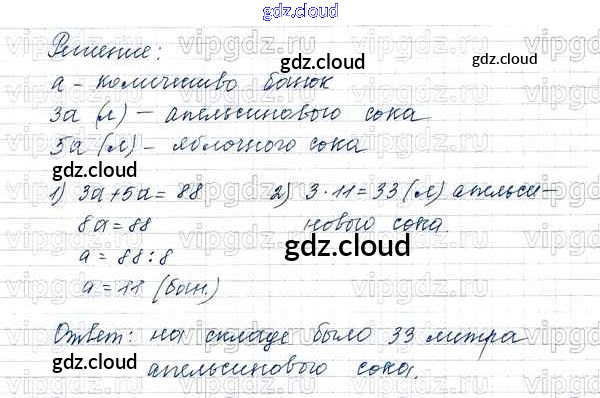 gdz.cloud
Решение:
gdz.cloud
gdz.cloud
a - количество банок
3a (л) - апельсинового сока
5a (л) - яблочного сока
gdz.cloud
1) 3a+5a=88 2) 3·11=33 (л) апельси-
8a=88 нового сока.
gdz.cloud
a = 88:8
a = 11 (бан.)
Ответ: на складе было 33 литра
gdz.cloud
gdz.cloud
апельсинового сока.